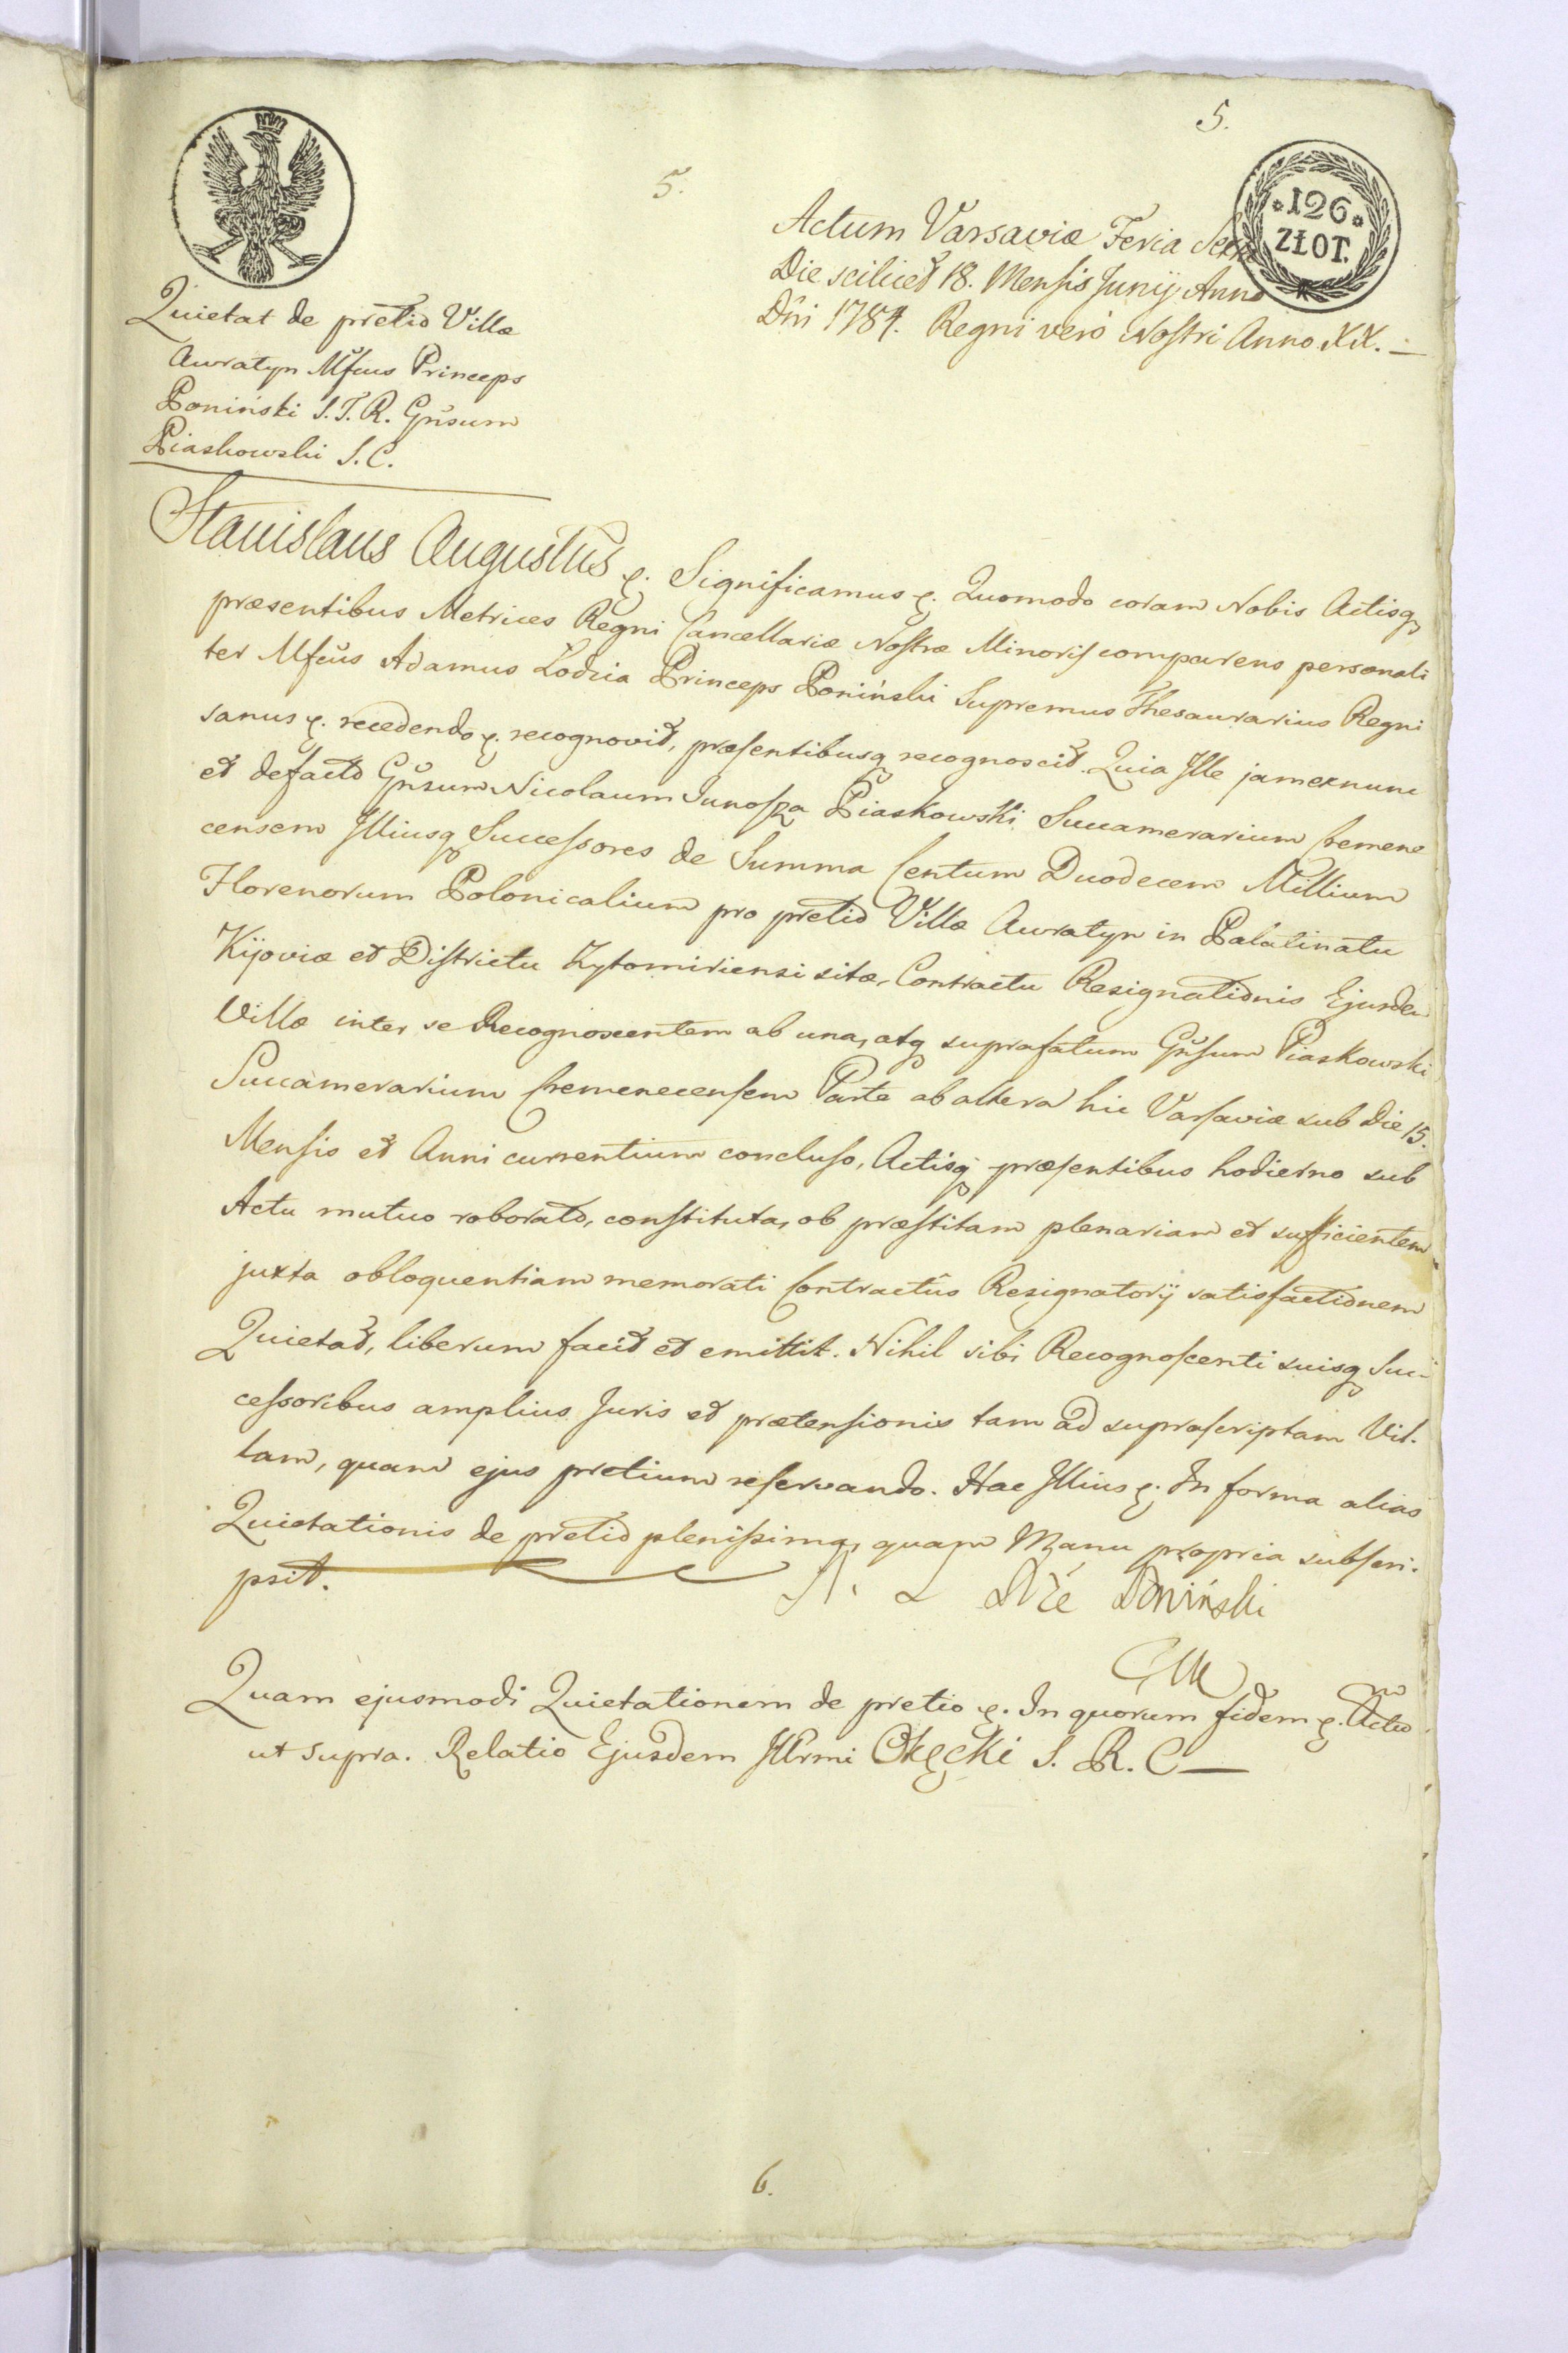 5.
5.
*126*
ZŁOT.
Actum Varsaviæ Feria
Die scilicet 18. Mensis Junij Anno
Dni 1784. Regni vero Nostri Anno XX. —
Quietat de pretio Villæ
Awratyn Mfcus Princeps
Poniński S. T. R. Gnsum
Piaskowski S. C.
Stanislaus Augustus &. Significamus &. Quomodo coram Nobis Actisq
præsentibus Metrices Regni Cancellariæ Nostræ Minoris comparens personali
ter Mfcus Adamus Lodzia Princeps Poniński Supremus Thesaurarius Regni
sanus &. recedendo &. recognovit, præsentibusq recognoscit. Quia Ille jam exnunc
et defacto Gnsum Nicolaum Junosza Piaskowski Succamerarium Cremene
censem Illiusq Successores de Summa Centum Duodecem Millium
Florenorum Polonicalium pro pretio Villæ Awratyn in Palatinatu
Kijoviæ et Districtu Zytomiriensi sitæ, Contractu Resignationis Ejusdem
Villæ inter se Recognoscentem ab una, atq suprafatum Gnsum Piaskowski
Succamerarium Cremenecensem Parte ab altera hic Varsaviæ sub Die 15.
Mensis et Anni currentium concluso, Actisq præsentibus hodierno sub
Actu mutuo roborato, constituta, ob præstitam plenariam et sufficientem
juxta obloquentiam memorati Contractûs Resignatorij satisfactionem
Quietat, liberum facit et emittit. Nihil sibi Recognoscenti suisq Suc-
cessoribus amplius Juris et prætensionis tam ad suprascriptam Vil-
lam, quam ejus pretium reservando. Hac Illius &. In forma alias
Quietationis de pretio plenissima, quam Manu propria subscri-
psit. A. L Poniński
Quam ejusmodi Quietationem de pretio &. In quorum fidem &. Actu
ut supra. Relatio Ejusdem Illrmi Okęcki S. R. C —
6.